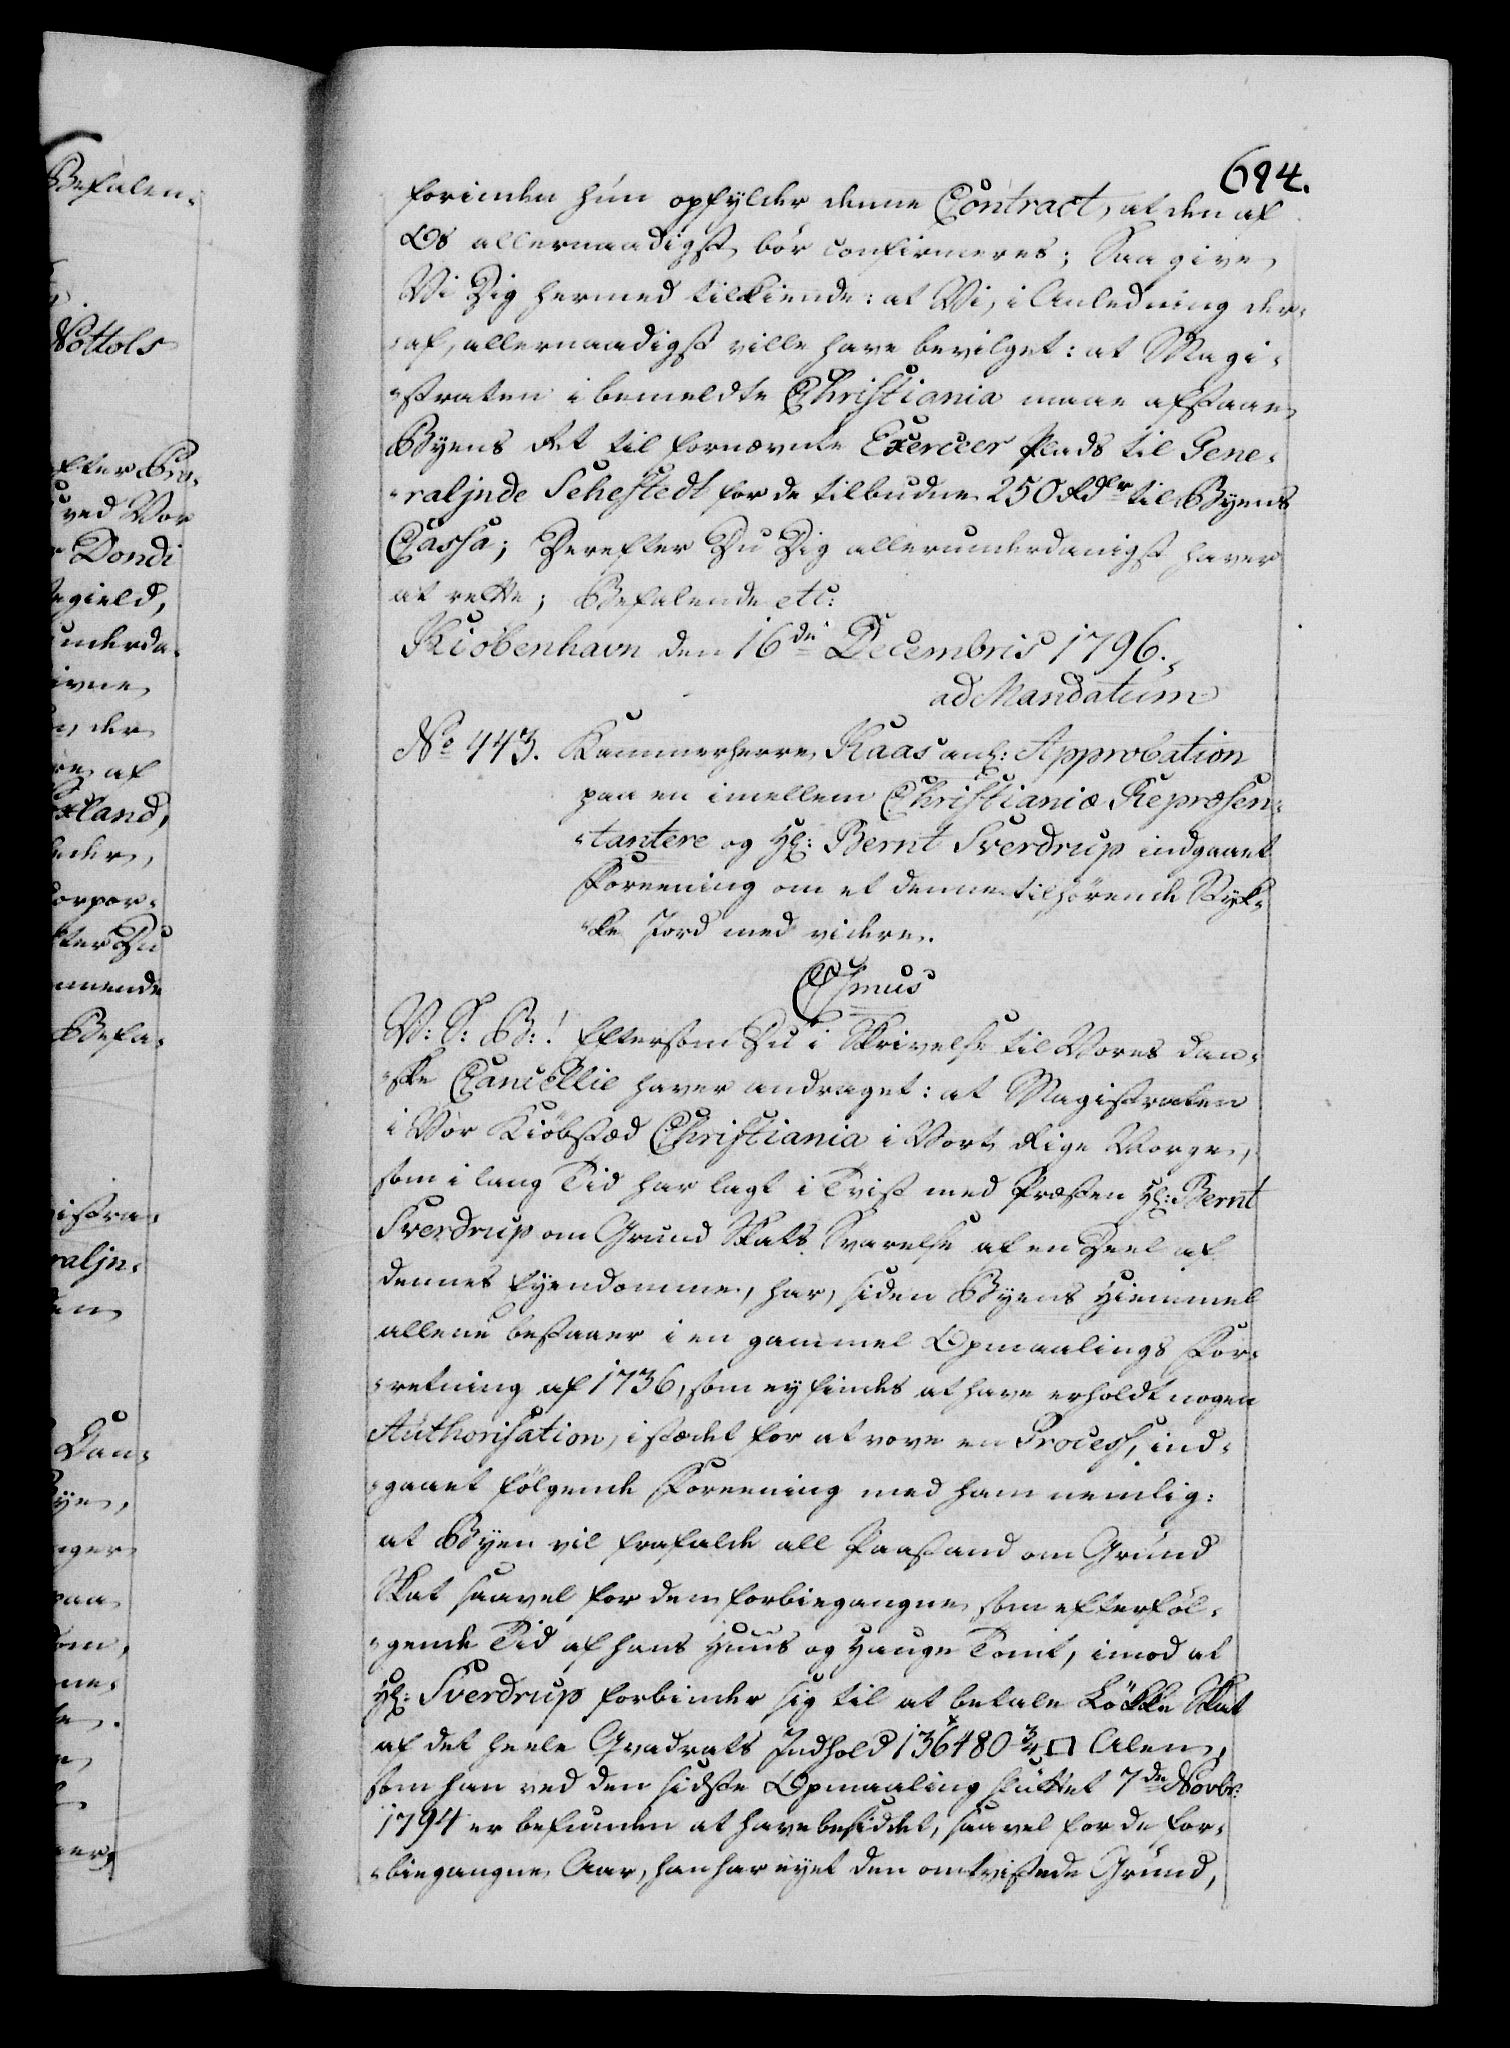 694.
forinden hun opfylder denne Contract, at den af
Os allernaadigst bör confirmeres; Saa give
Vi Dig hermed tilkiende: at Vi, i Anledning der-
-af, allernaadigst ville have bevilget: at Magi-
-straten i bemeldte Christiania maae afstaae
Byens Ret til fornævnte Exerceer Plads til Gene-
-ralinde Sehestedt for de tilbudne 250 Rdlr til Byens
Cassa; Derefter Du Dig allerunderdanigst haver
at rette; Befalende etc:
Kiöbenhavn den 16de Decembris 1796.
ad Mandatum
No 443. Kammerherre Kaas anl: Approbation
paa en imellem Christianiæ Repræsen-
-tantere og Hr: Bernt Sverdrup indgaaet
Foreening om et denne tilhörende Styk-
-ke Jord med videre.
Chmus
V: S: B:! Eftersom Du i Skrivelse til Vores dan-
-ske Cancellie haver andraget: at Magistraten
i Vor Kiöbstæd Christiania i Vort Rige Norge,
som i lang Tid har lagt i Tvist med Præsten Hr: Bernt
Sverdrup om Grund Skats Svarelse af en Deel af
dennes Eyendomme, har, siden Byens Hiemmel
allene bestaaer i en gammel Opmaalings For-
-retning af 1736, som ey findes at have erholdt nogen
Authorisation, istædet for at vove en Process, ind-
-gaaet fölgende Foreening med ham nemlig:
at Byen vil frafalde all Paastand om Grund
Skat saavel for den forbiegangne som efterföl-
-gende Tid af hans Huus og Hauge Tomt, imod at
Hr: Sverdrup forbinder sig til at betale Lökke Skat
af det heele Qvadrats Indhold 136480 3/4 □ Alen,
som han ved den sidste Opmaaling sluttet 7de Novbr:
1794 er befunden at have besiddet, saavel for de for-
-biegangne Aar, han har eyet den omtvistede Grund,